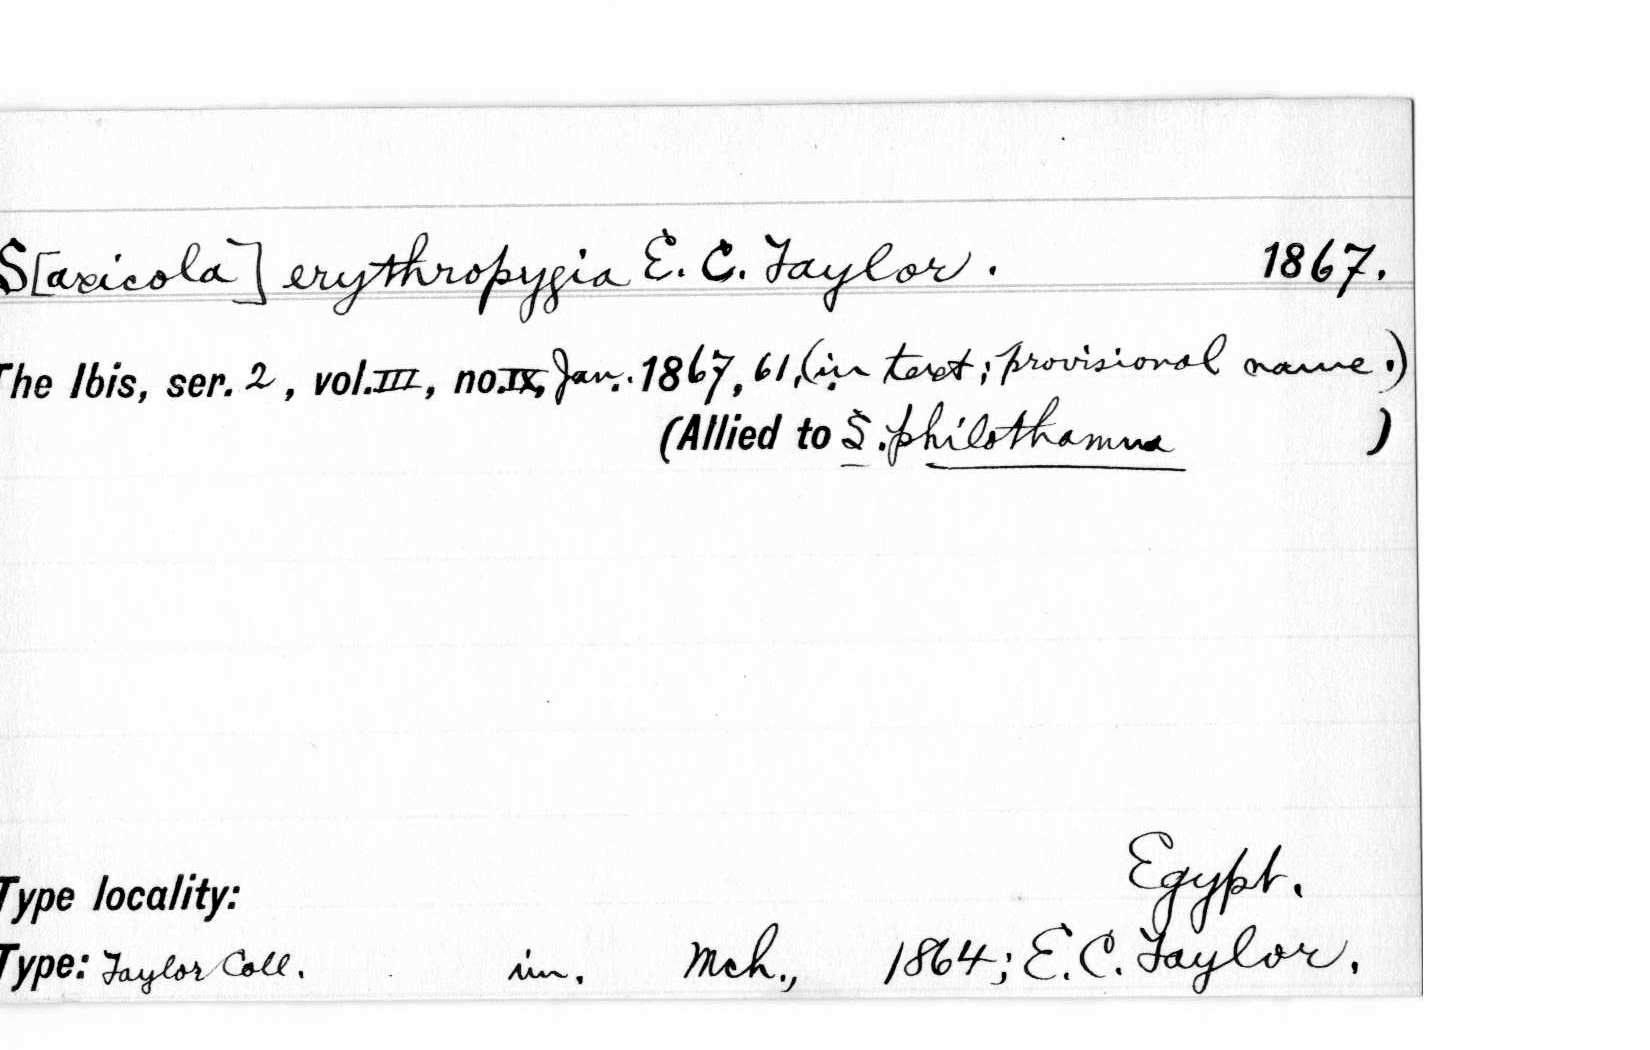 S[axicola] erythropygia E. C. Taylor. 1867.
The Ibis, ser. 2, vol. III, no. IX, Jan. 1867, 61, (in text; provisional name.)
(Allied to S. philothamna )
Type locality: Egypt.
Type: Taylor Coll. im. Mch., 1864; E. C. Taylor.